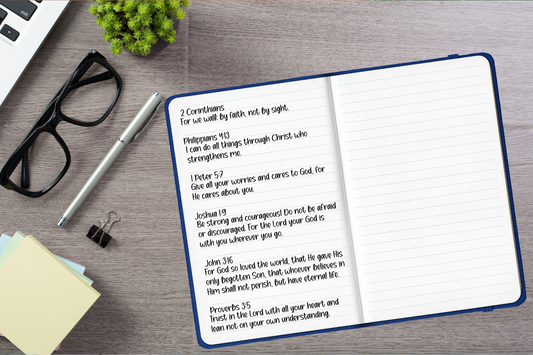 2 Corinthians
For we walk by faith, not by sight.
Philippians 4:13
I can do all things through Christ who
strengthens me.
1 Peter 5:7
Give all your worries and cares to God, for
He cares about you.
Joshua 1:9
Be strong and courageous! Do not be afraid
or discouraged. For the Lord your God is
with you wherever you go.
John 3:16
For God so loved the world, that He gave His
only begotten Son, that whoever believes in
Him shall not perish, but have eternal life.
Proverbs 3:5
Trust in the Lord with all your heart and
lean not on your own understanding.